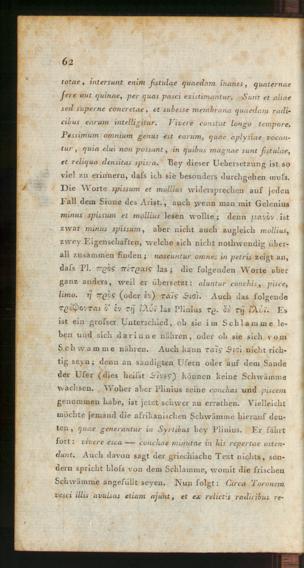 62
totae, intersunt enim fistulae quaedam inanes, quaternae
fere aut quinae, per quas pasci existimantur. Sunt et aliae
sed superne concretae, et subesse membrana quaedam radi-
cibus earum intelligitur. Vivere constat longo tempore.
Pessimum omnium genus est earum, quae aplysiae vocan-
tur, quia elui non possunt, in quibus magnae sunt fistulae,
et reliqua densitas spissa. Bey dieser Uebersetzung ist so
viel zu erinnern, daſs ich sie besonders durchgehen muſs.
Die Worte spissum et mollius widersprechen auf jeden
Fall dem Sinne des Arist., auch wenn man mit Gelenius
minus spissum et mollius lesen wollte; denn μανὸν ist
zwar minus spissum, aber nicht auch zugleich mollius,
zwey Eigenschaften, welche sich nicht nothwendig über-
all zusammen finden; nascuntur omnes in petris zeigt an,
daſs Pl. πρὸς πέτραις las; die folgenden Worte aber
ganz anders, weil er übersetzt: aluntur conchis, pisce,
limo. ἢ πρὸς (oder ἐν) ταῖς θισί. Auch das folgende
τρέφονται δ' ἐν τῇ ἰλύϊ las Plinius τρ. δὲ τῇ ἰλύϊ. Es
ist ein groſser Unterschied, ob sie im Schlamme le-
ben und sich darinne nähren, oder ob sie sich vom
Schwamme nähren. Auch kann ταῖς θισὶ nicht rich-
tig seyn; denn an sandigten Ufern oder auf dem Sande
der Ufer (dies heiſst θῖνες) können keine Schwämme
wachsen. Woher aber Plinius seine conchas und piscem
genommen habe, ist jetzt schwer zu errathen. Vielleicht
möchte jemand die afrikanischen Schwämme hierauf deu-
ten, quae generantur in Syrtibus bey Plinius. Er fährt
fort: vivere esca — conchae minutae in his repertae osten-
dunt. Auch davon sagt der griechische Text nichts, son-
dern spricht bloſs von dem Schlamme, womit die frischen
Schwämme angefüllt seyen. Nun folgt: Circa Toronem
vesci illis avulsas etiam ajunt, et ex relictis radicibus re-